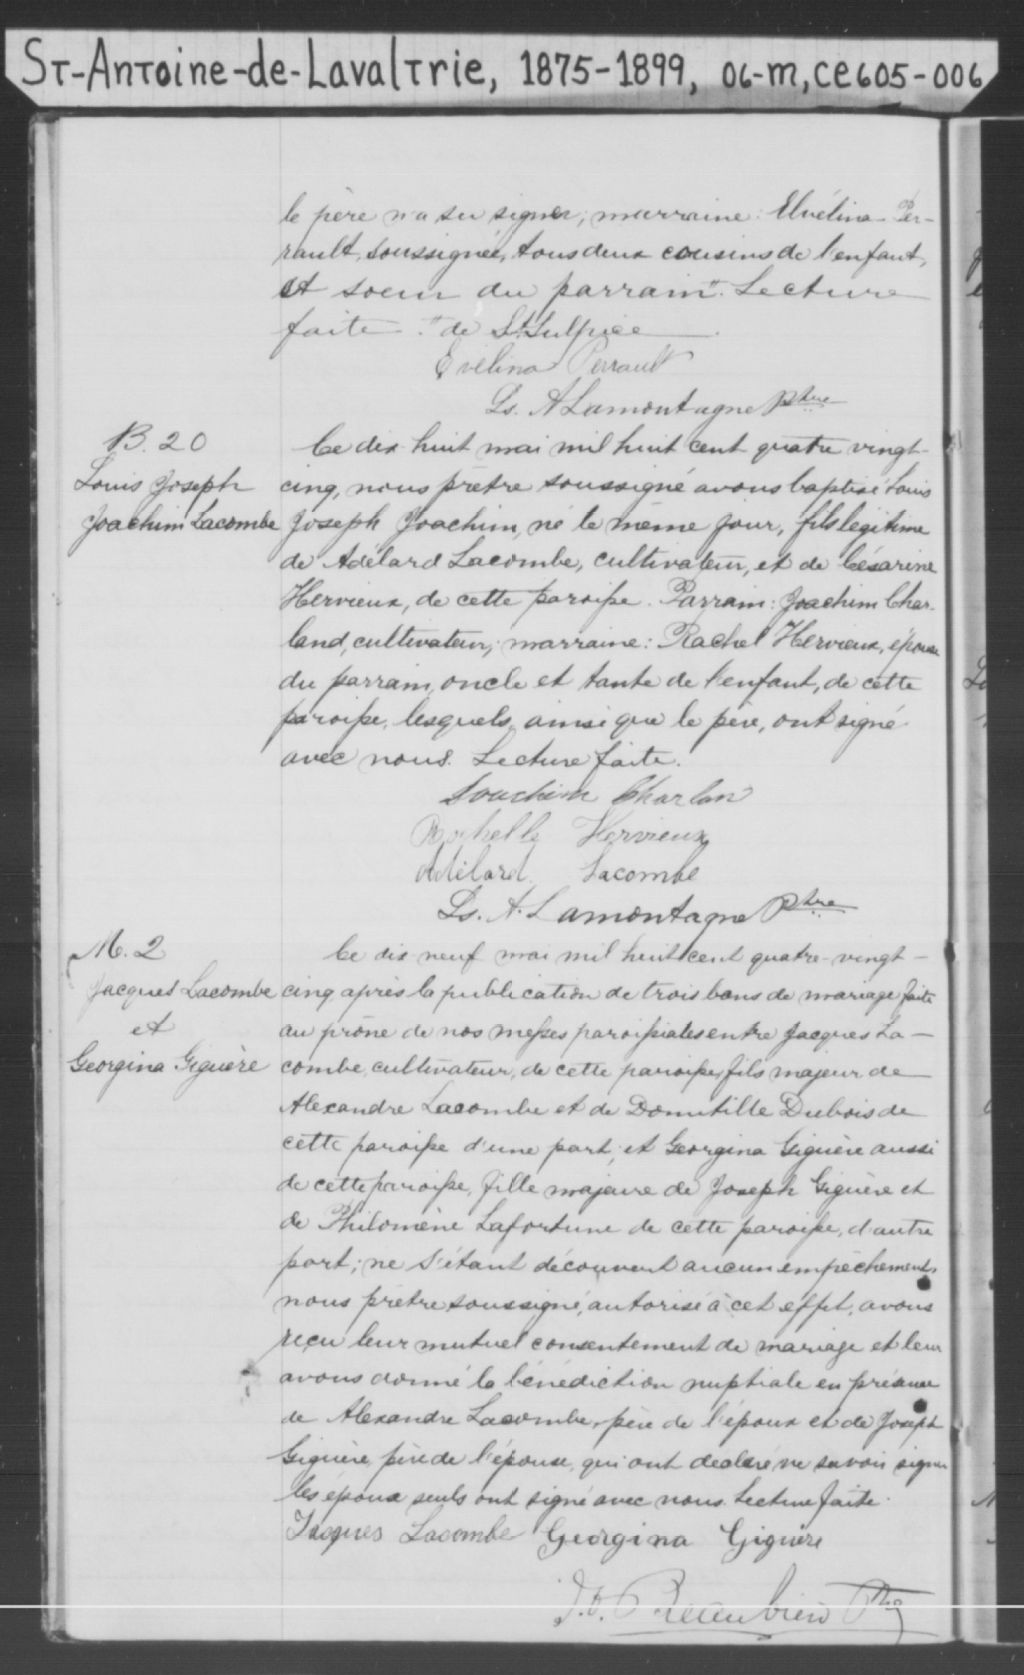 St-Antoine-de-Lavaltrie, 1875-1899, 06-m, CE605-006
le père n'a su signer; marraine: Elvélina Per-
rault, soussignée, tous deux cousins de l'enfant,
et soeur du parrain". Lecture
faite. " de St. Sulpice
Evelina Perrault
Ls. A Lamontagne Ptre
B. 20
Louis Joseph
Joachim Lacombe
Ce dix-huit mai mil huit cent quatre vingt-
cinq, nous prêtre soussigné avons baptisé Louis
Joseph Joachim, né le même jour, fils légitime
de Adélard Lacombe, cultivateur, et de Césarine
Hervieux, de cette paroisse. Parrain: Joachim Char-
land, cultivateur; marraine: Rachel Hervieux, épouse
du parrain, oncle et tante de l'enfant, de cette
paroisse, lesquels, ainsi que le père, ont signé
avec nous. Lecture faite.
Joachim Charlan
Rachelle Hervieux
Adélard Lacombe
Ls. A. Lamontagne Ptre
M. 2
Jacques Lacombe
et
Georgina Giguère
Ce dix-neuf mai mil huit cent quatre-vingt-
cinq après la publication de trois bans de mariage faite
au prône de nos messes paroissiales entre Jacques La-
combe, cultivateur, de cette paroisse, fils majeur de
Alexandre Lacombe et de Domitille Dubois de
cette paroisse d'une part; et Georgina Giguère aussi
de cette paroisse, fille majeure de Joseph Giguère et
de Philomène Lafortune de cette paroisse, d'autre
part; ne s'étant découvert aucun empêchement,
nous prêtre soussigné, autorisé à cet effet, avons
reçu leur mutuel consentement de mariage et leur
avons donné la bénédiction nuptiale en présence
de Alexandre Lacombe, père de l'époux et de Joseph
Giguère, père de l'épouse, qui ont déclaré ne savoir signer
les époux seuls ont signé avec nous. Lecture faite.
Jacques Lacombe Georgina Giguère
J. O. Beaubien Ptre